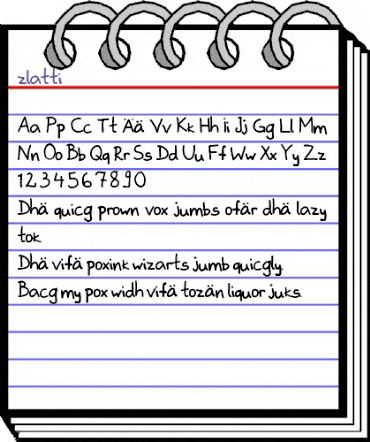 zlatti
Aa Pp Cc Tt Ää Vv Kk Hh Ii Jj Gg Ll Mm
Nn Oo Bb Qq Rr Ss Dd Uu Ff Ww Xx Yy Zz
1234567890
Dhä quicg prown vox jumbs ofär dhä lazy
tok
Dhä vifä poxink wizarts jumb quicgly
Bacg my pox widh vifä tozän liquor juks